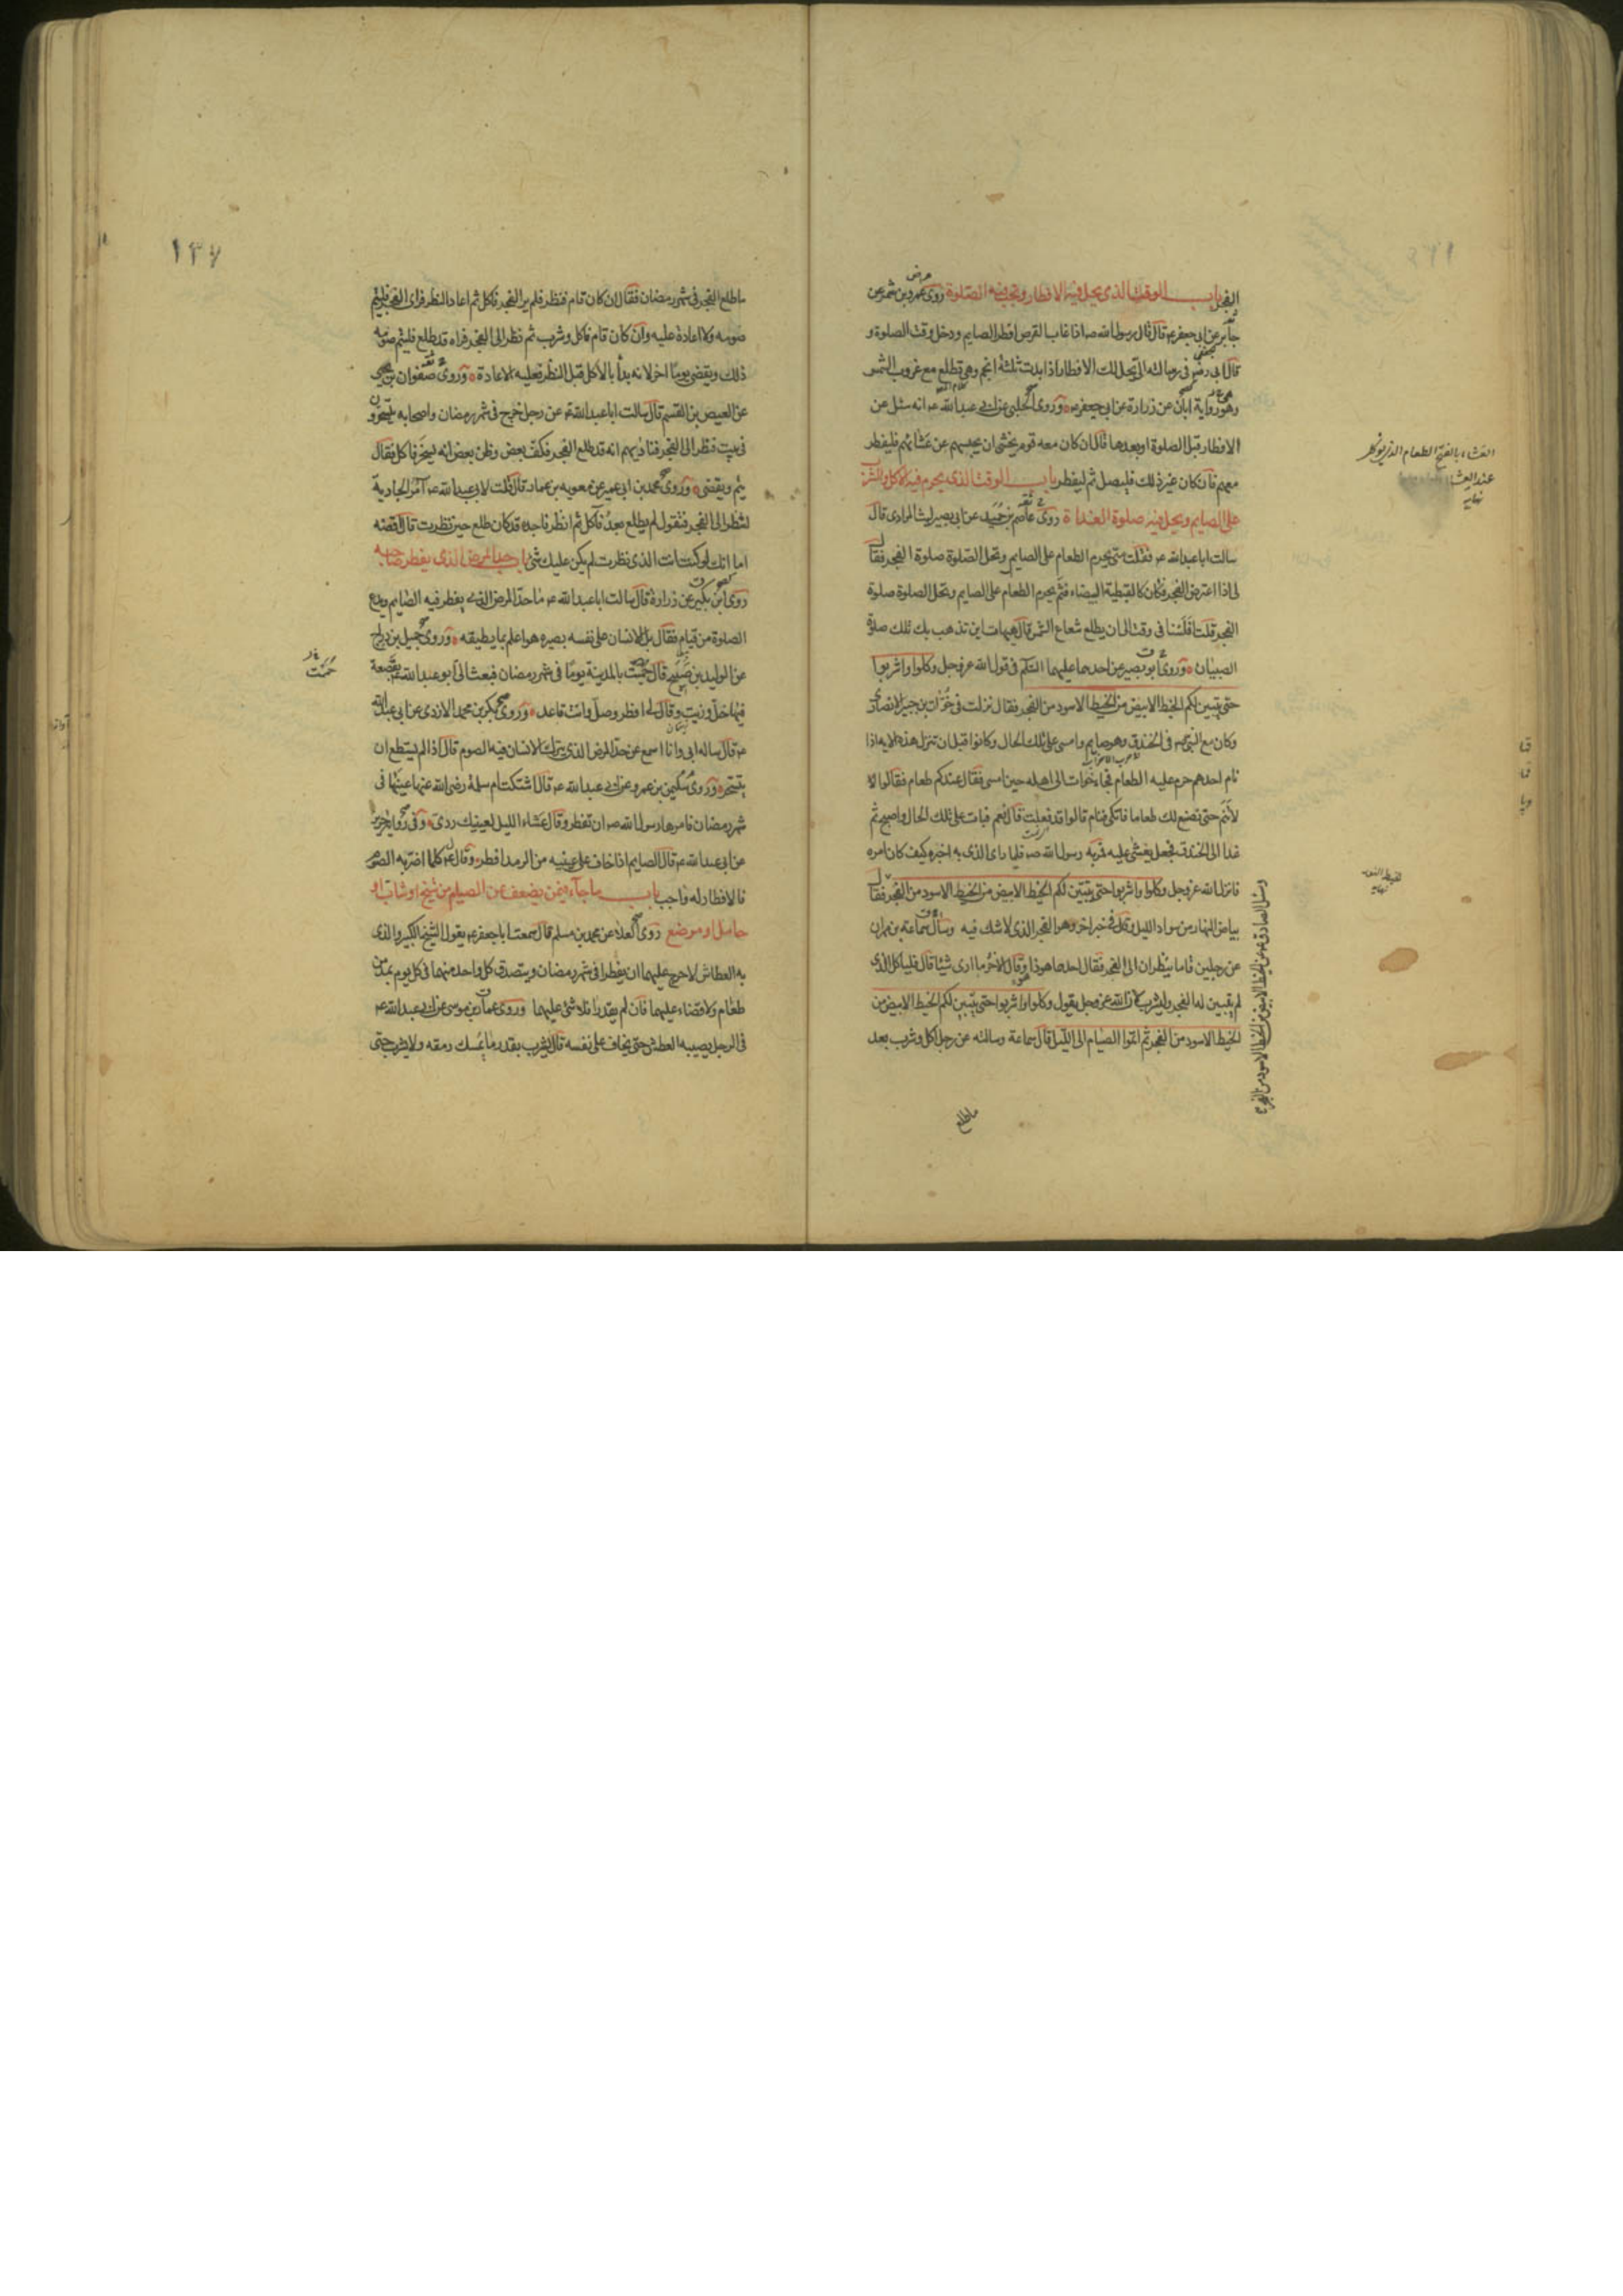 الفجر باب الوقت الذي يحل فيه الافطار وتجب فيه الصلوة روى عمرو بن شمر عن
جابر عن ابي جعفر ع قال قال رسول الله ص اذا غاب القرص افطر الصايم ودخل وقت الصلوة و
قال ابي رض في رسالته الي يحل لك الافطار اذا بدت ثلثة انجم وهي تطلع مع غروب الشمس
وهو رواية ابان عن زرارة عن ابي جعفر ع وروى الحلبي عن ابي عبد الله ع انه سئل عن
الافطار قبل الصلوة او بعدها قال ان كان معه قوم يخشى ان يحبسهم عن عشائهم فليفطر
معهم فان كان غير ذلك فليصل ثم ليفطر باب الوقت الذي يحرم فيه الاكل والشرب
على الصايم ويحل فيه صلوة الغداة روى عاصم بن حميد عن ابي بصير ليث المرادي قال
سالت ابا عبد الله ع فقلت متى يحرم الطعام على الصايم وتحل الصلوة صلوة الفجر فقال
لي اذا اعترض الفجر فكان كالقبطية البيضاء فثم يحرم الطعام على الصايم وتحل الصلوة صلوة
الفجر قلت افلسنا في وقت الى ان يطلع شعاع الشمس قال هيهات اين تذهب بك تلك صلوة
الصبيان وروى ابو بصير عن احدهما عليهما السلم في قول الله عز وجل وكلوا واشربوا
حتى يتبين لكم الخيط الابيض من الخيط الاسود من الفجر فقال نزلت في خوات بن جبير الانصاري
وكان مع النبي ص في الخندق وهو صايم وامسى على تلك الحال وكانوا قبل ان تنزل هذه الاية اذا
نام احدهم حرم عليه الطعام فجاء خوات الى اهله حين امسى فقال عندكم طعام فقالوا لا
لا تنم حتى نصنع لك طعاما فاتكى فنام قالوا قد فعلت قال نعم فبات على تلك الحال واصبح ثم
غدا الى الخندق فجعل يغشى عليه فمر به رسول الله ص فلما راى الذي به اخبره كيف كان امره
فانزل الله عز وجل وكلوا واشربوا حتى يتبين لكم الخيط الابيض من الخيط الاسود من الفجر فقال
بياض النهار من سواد الليل وقال في خبر اخر وهو الفجر الذي لا شك فيه وسال سماعة بن مهران
عن رجلين قاما ينظران الى الفجر فقال احدهما هو ذا وقال الاخر ما ارى شيئا قال فلياكل الذي
لم يتبين له الفجر وليشرب لان الله عز وجل يقول وكلوا واشربوا حتى يتبين لكم الخيط الابيض من
الخيط الاسود من الفجر ثم اتموا الصيام الى الليل قال سماعة وسالته عن رجل اكل وشرب بعد
ما طلع
العشاء بالفتح الطعام الذي يوكل
عند العشاء
نهايه
وسئل الصادق ع عن الخيط الابيض من الخيط الاسود من الفجر
١٣٧
ما طلع الفجر في شهر رمضان فقال ان كان قام فنظر فلم ير الفجر فاكل ثم اعاد النظر فراى الفجر فليتم
صومه ولا اعادة عليه وان كان قام فاكل وشرب ثم نظر الى الفجر فراه قد طلع فليتم صومه
ذلك ويقضي يوما اخر لانه بدأ بالاكل قبل النظر فعليه الاعادة وروى صفوان بن يحيى
عن العيص بن القسم قال سالت ابا عبد الله ع عن رجل خرج في شهر رمضان واصحابه يتسحرون
في بيت فنظر الى الفجر فناديهم انه قد طلع الفجر فكف بعض وظن بعض انه يسخر فاكل فقال
يتم ويقضي وروى محمد بن ابي عمير عن معوية بن عمار قال قلت لابي عبد الله ع آمر الجارية
لتنظر الى الفجر فتقول لم يطلع بعد فآكل ثم انظر فاجده قد كان طلع حين نظرت قال اقضه
اما انك لو كنت انت الذي نظرت لم يكن عليك شئ باب حد المرض الذي يفطر صاحبه
روى ابن بكير عن زرارة قال سالت ابا عبد الله ع ما حد المرض الذي يفطر فيه الصايم ويدع
الصلوة من قيام فقال بل الانسان على نفسه بصيرة هو اعلم بما يطيقه وروى جميل بن دراج
عن الوليد بن صبيح قال حممت بالمدينة يوما في شهر رمضان فبعث الي ابو عبد الله ع بقصعة
فيها خل وزيت وقال لي افطر وصل وانت قاعد وروى بكر بن محمد الازدي عن ابي عبد الله
ع قال ساله ابي وانا اسمع عن حد المرض الذي يترك الانسان فيه الصوم قال اذا لم يستطع ان
يتسحر وروى سليمن بن عمرو عن ابي عبد الله ع قال اشتكت ام سلمة رضي الله عنها عينيها في
شهر رمضان فامرها رسول الله ص ان تفطر وقال عشاء الليل لعينيك ردي وفي رواية حريز
عن ابي عبد الله ع قال الصايم اذا خاف على عينيه من الرمد افطر وقال ع كلما اضر به الصوم
فالافطار له واجب باب ما جاء فيمن يضعف عن الصيام من شيخ او شاب او
حامل او موضع روى العلاء عن محمد بن مسلم قال سمعت ابا جعفر ع يقول الشيخ الكبير والذي
به العطاش لا حرج عليهما ان يفطرا في شهر رمضان ويتصدق كل واحد منهما في كل يوم بمد من
طعام ولا قضاء عليهما فان لم يقدرا فلا شئ عليهما وروى عمار بن موسى عن ابي عبد الله ع
في الرجل يصيبه العطش حتى يخاف على نفسه قال يشرب بقدر ما يمسك رمقه ولا يشرب حتى
حممت